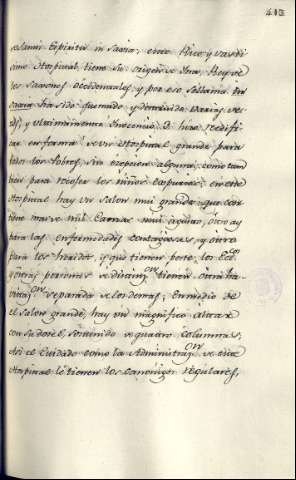 413
se llama Espiritu in Saxia; este Rico y vasti
simo Hospital tiene su origen de Ina, Rey de
los Saxones occidentales, y por eso se llama in
Saxia, ha sido quemado y destruido varias ve
ces, y ultimamente Inocencio 3. hizo reedifi
car en forma de un Hospital grande para
todos los Pobres, sin excepcion alguna, como tam
bien para recoger los niños expuestos; en este
Hospital hay un salon mui grande que con
tiene mas de mil Camas mui aseado, otro ay
para las enfermedades contagiosas, y otro
para los heridos, y que tienen peste, los Ecc.cos
y otras personas de distinz.on tienen otra ha
vitaz.on separada de los demas; en medio de
el salon grande, hay un magnifico altar
con su dosel, sostenido de quatro columnas,
asi el Cuidado como la Administraz.on de este
Hospital le tienen los canonigos regulares,